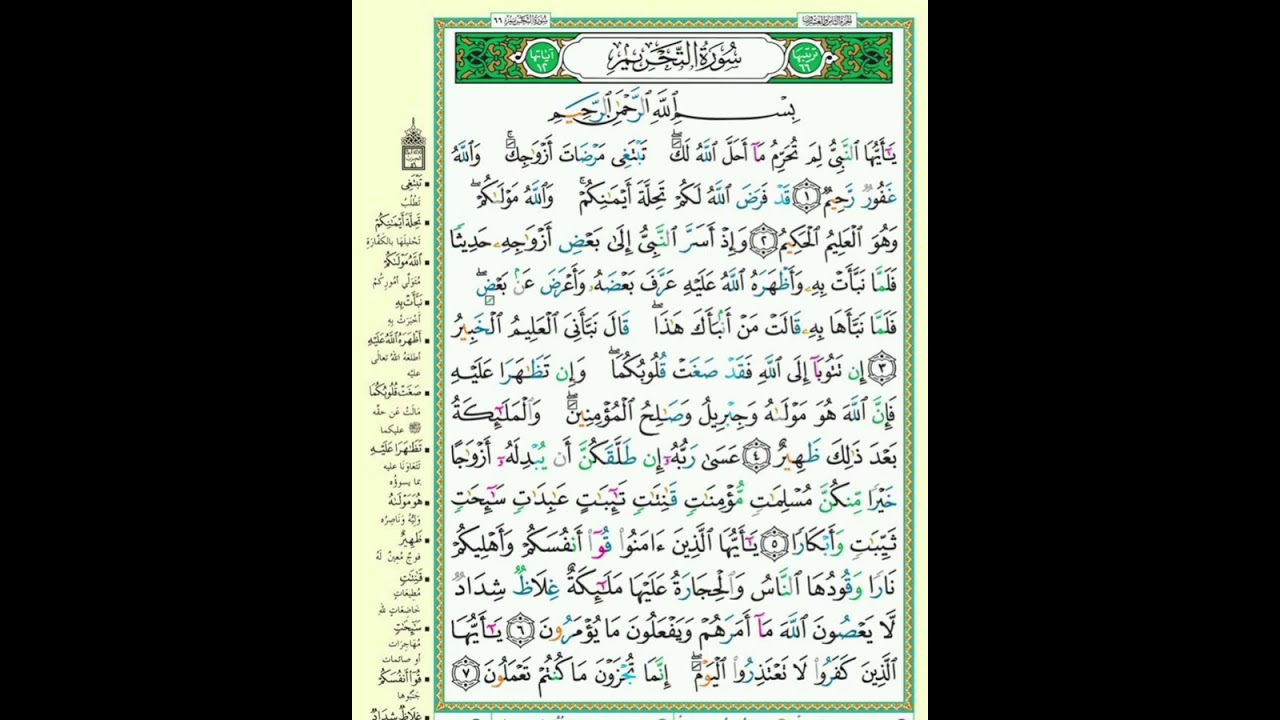 سُورَةُ التَّحْرِيمِ ٦٦
الجزء الثامن والعشرون
ترتيبها ٦٦
سُورَةُ التَّحْرِيمِ
آياتها ١٢
بِسْمِ اللَّهِ الرَّحْمَٰنِ الرَّحِيمِ
يَـٰٓأَيُّهَا النَّبِيُّ لِمَ تُحَرِّمُ مَآ أَحَلَّ اللَّهُ لَكَ ۖ تَبْتَغِى مَرْضَاتَ أَزْوَٰجِكَ ۚ وَاللَّهُ
غَفُورٌ رَّحِيمٌ ١ قَدْ فَرَضَ اللَّهُ لَكُمْ تَحِلَّةَ أَيْمَـٰنِكُمْ ۚ وَاللَّهُ مَوْلَىٰكُمْ ۖ
وَهُوَ الْعَلِيمُ الْحَكِيمُ ٢ وَإِذْ أَسَرَّ النَّبِيُّ إِلَىٰ بَعْضِ أَزْوَٰجِهِۦ حَدِيثًا
فَلَمَّا نَبَّأَتْ بِهِۦ وَأَظْهَرَهُ اللَّهُ عَلَيْهِ عَرَّفَ بَعْضَهُۥ وَأَعْرَضَ عَنۢ بَعْضٍ ۖ
فَلَمَّا نَبَّأَهَا بِهِۦ قَالَتْ مَنْ أَنۢبَأَكَ هَـٰذَا ۖ قَالَ نَبَّأَنِىَ الْعَلِيمُ الْخَبِيرُ
٣ إِن تَتُوبَآ إِلَى اللَّهِ فَقَدْ صَغَتْ قُلُوبُكُمَا ۖ وَإِن تَظَـٰهَرَا عَلَيْهِ
فَإِنَّ اللَّهَ هُوَ مَوْلَىٰهُ وَجِبْرِيلُ وَصَـٰلِحُ الْمُؤْمِنِينَ ۖ وَالْمَلَـٰٓئِكَةُ
بَعْدَ ذَٰلِكَ ظَهِيرٌ ٤ عَسَىٰ رَبُّهُۥٓ إِن طَلَّقَكُنَّ أَن يُبْدِلَهُۥٓ أَزْوَٰجًا
خَيْرًا مِّنكُنَّ مُسْلِمَـٰتٍ مُّؤْمِنَـٰتٍ قَـٰنِتَـٰتٍ تَـٰٓئِبَـٰتٍ عَـٰبِدَٰتٍ سَـٰٓئِحَـٰتٍ
ثَيِّبَـٰتٍ وَأَبْكَارًا ٥ يَـٰٓأَيُّهَا الَّذِينَ ءَامَنُوا قُوٓا أَنفُسَكُمْ وَأَهْلِيكُمْ
نَارًا وَقُودُهَا النَّاسُ وَالْحِجَارَةُ عَلَيْهَا مَلَـٰٓئِكَةٌ غِلَاظٌ شِدَادٌ
لَّا يَعْصُونَ اللَّهَ مَآ أَمَرَهُمْ وَيَفْعَلُونَ مَا يُؤْمَرُونَ ٦ يَـٰٓأَيُّهَا
الَّذِينَ كَفَرُوا لَا تَعْتَذِرُوا الْيَوْمَ ۖ إِنَّمَا تُجْزَوْنَ مَا كُنتُمْ تَعْمَلُونَ ٧
تَبْتَغِى
تَطْلُبُ
تَحِلَّةَ أَيْمَـٰنِكُمْ
تَحْلِيلَهَا بِالكَفَّارَةِ
اللَّهُ مَوْلَىٰكُمْ
مُتَوَلِّي أُمُورِكُمْ
نَبَّأَتْ بِهِ
أَخْبَرَتْ بِهِ
أَظْهَرَهُ اللَّهُ عَلَيْهِ
أطلعهُ اللهُ تعالى
عليْه
صَغَتْ قُلُوبُكُمَا
مَالَتْ عَن حقِّه
ﷺ عليكما
تَظَـٰهَرَا عَلَيْهِ
تَتَعَاوَنَا عليه
بما يسوؤُه
هُوَ مَوْلَىٰهُ
وَلِيُّهُ وَنَاصِرُه
ظَهِيرٌ
فوجٌ مُعينٌ لَهُ
قَـٰنِتَـٰتٍ
مُطِيعَاتٍ
خَاضعَاتٍ للهِ
سَـٰٓئِحَـٰتٍ
مُهَاجِرَات
أو صائمات
قُوٓا أَنفُسَكُمْ
جَنِّبُوها
غِلَاظٌ شِدَادٌ